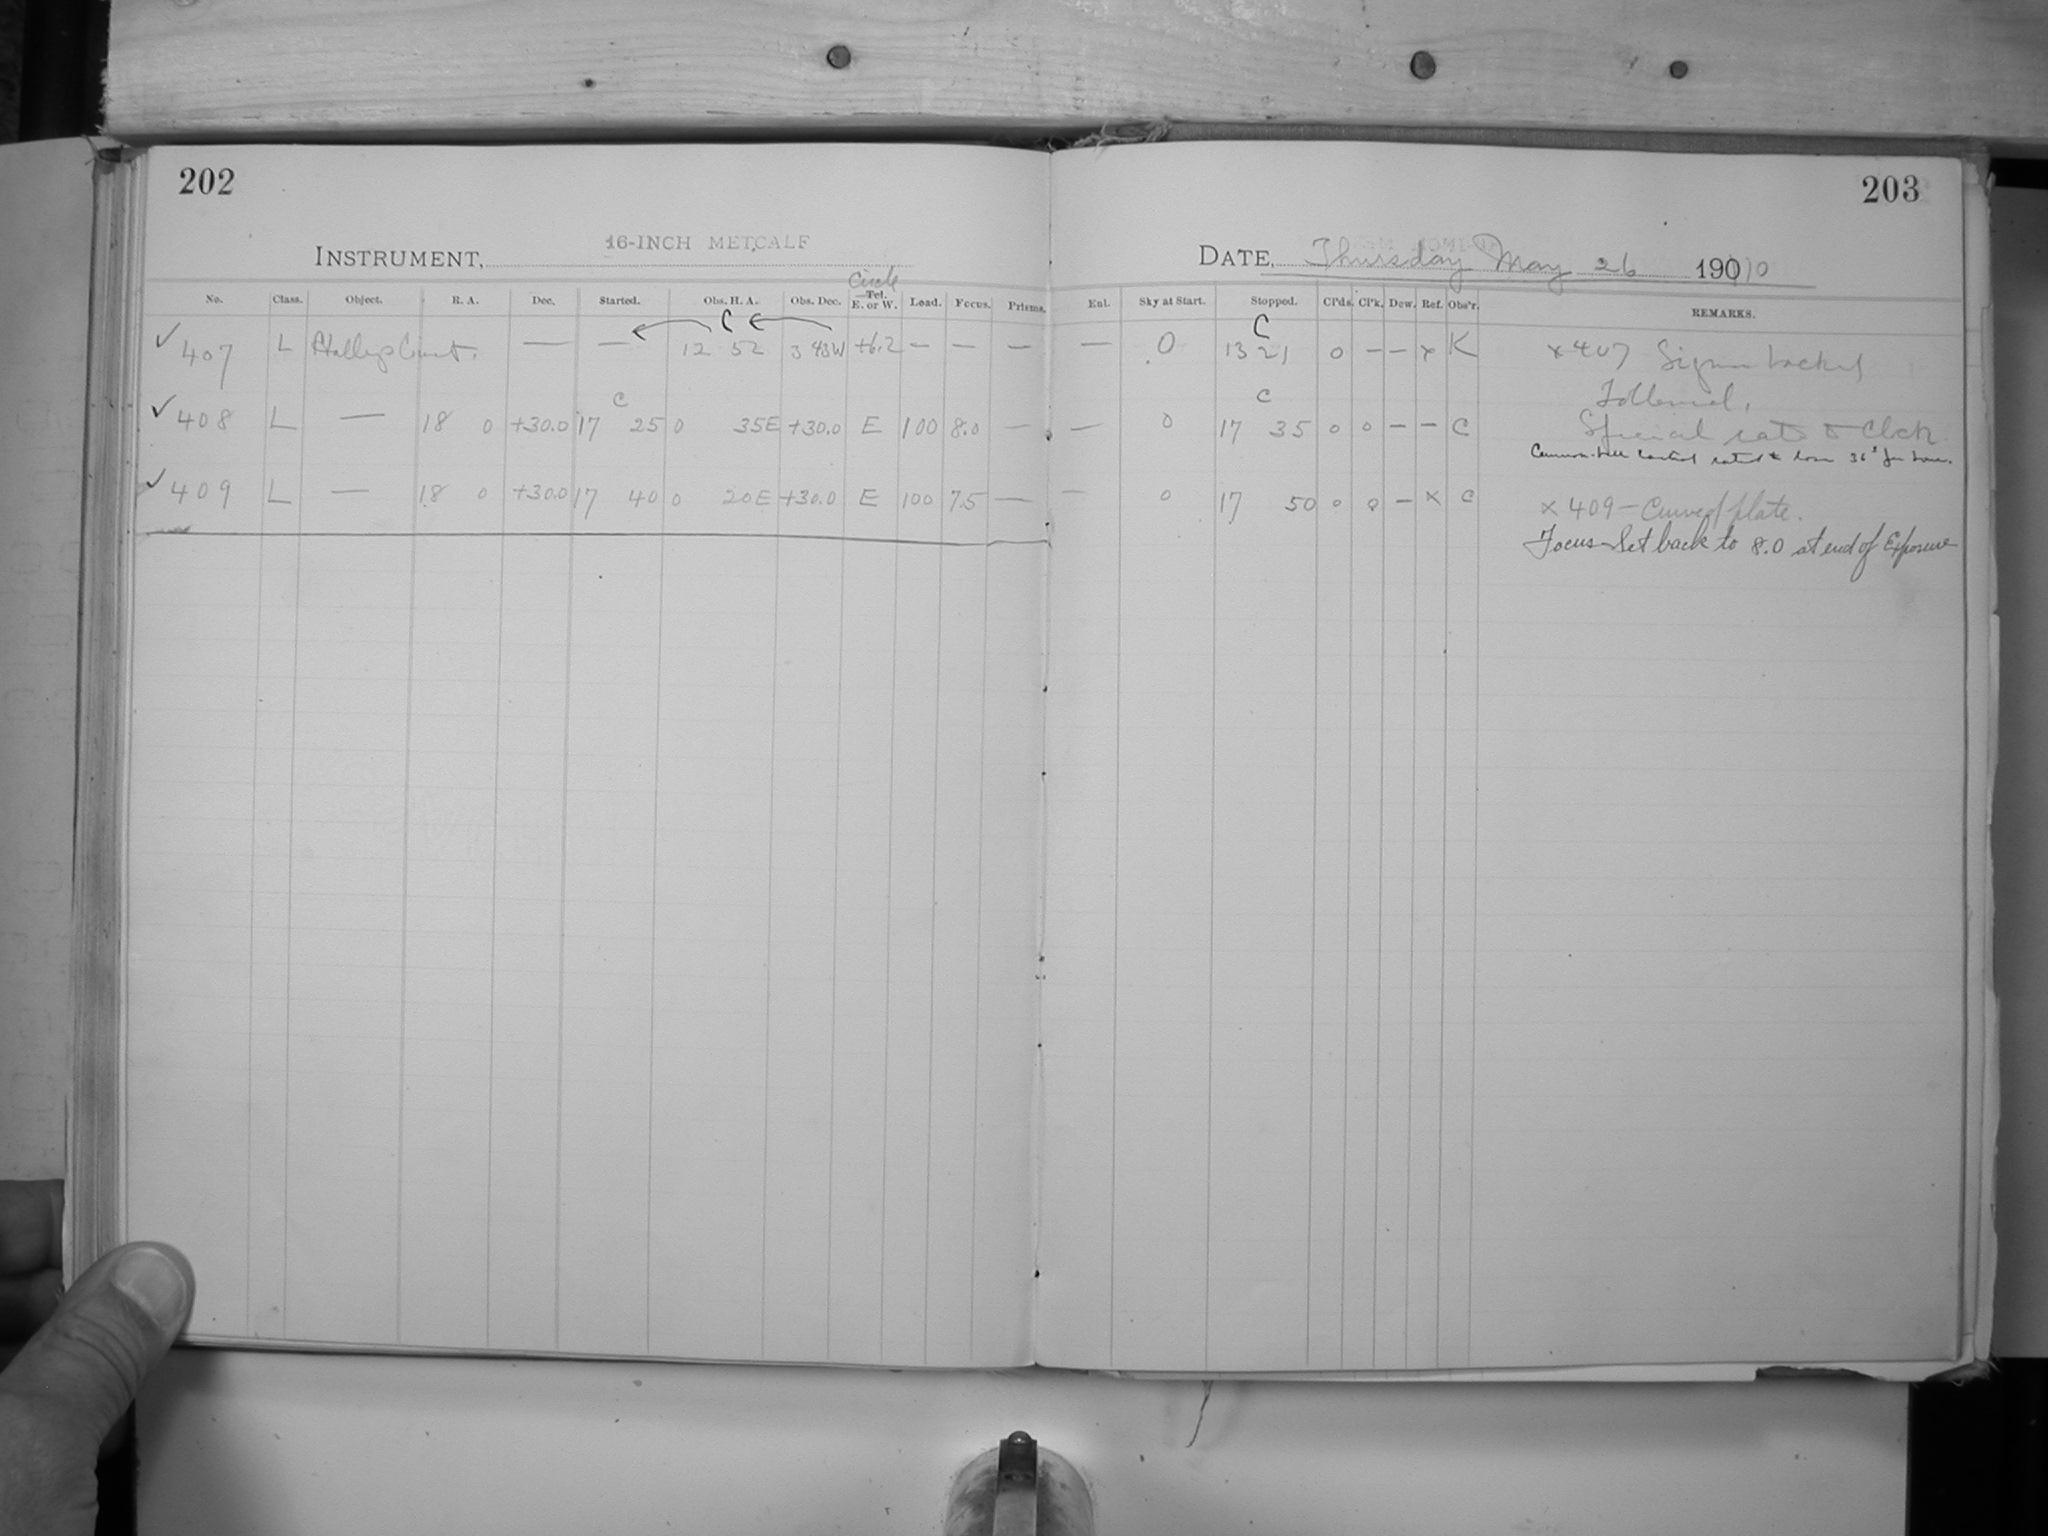 202
203
INSTRUMENT, 16-INCH METCALF
DATE, Thursday May 26 1910
Circle
No. Class. Object. R. A. Dec. Started. Obs. H. A. Obs. Dec. Tel. E. or W. Load. Focus. Prisms.
Enl. Sky at Start. Stopped. Cl'ds. Cl'k. Dew. Ref. Obs'r. REMARKS.
C
C
✓ 407 L Halleys Comet. — — 12 52 3 43W +6.2 — — — — 0 13 21 0 — — x K x 407
Followed,
C
C
✓ 408 L — 18 0 +30.0 17 25 0 35E +30.0 E 100 8.0 — — 0 17 35 0 0 — — C Special rate
36s per hour.
✓ 409 L — 18 0 +30.0 17 40 0 20E +30.0 E 100 7.5 — — 0 17 50 0 0 — x C x 409 — Curved plate.
Focus Set back to 8.0 at end of Exposure